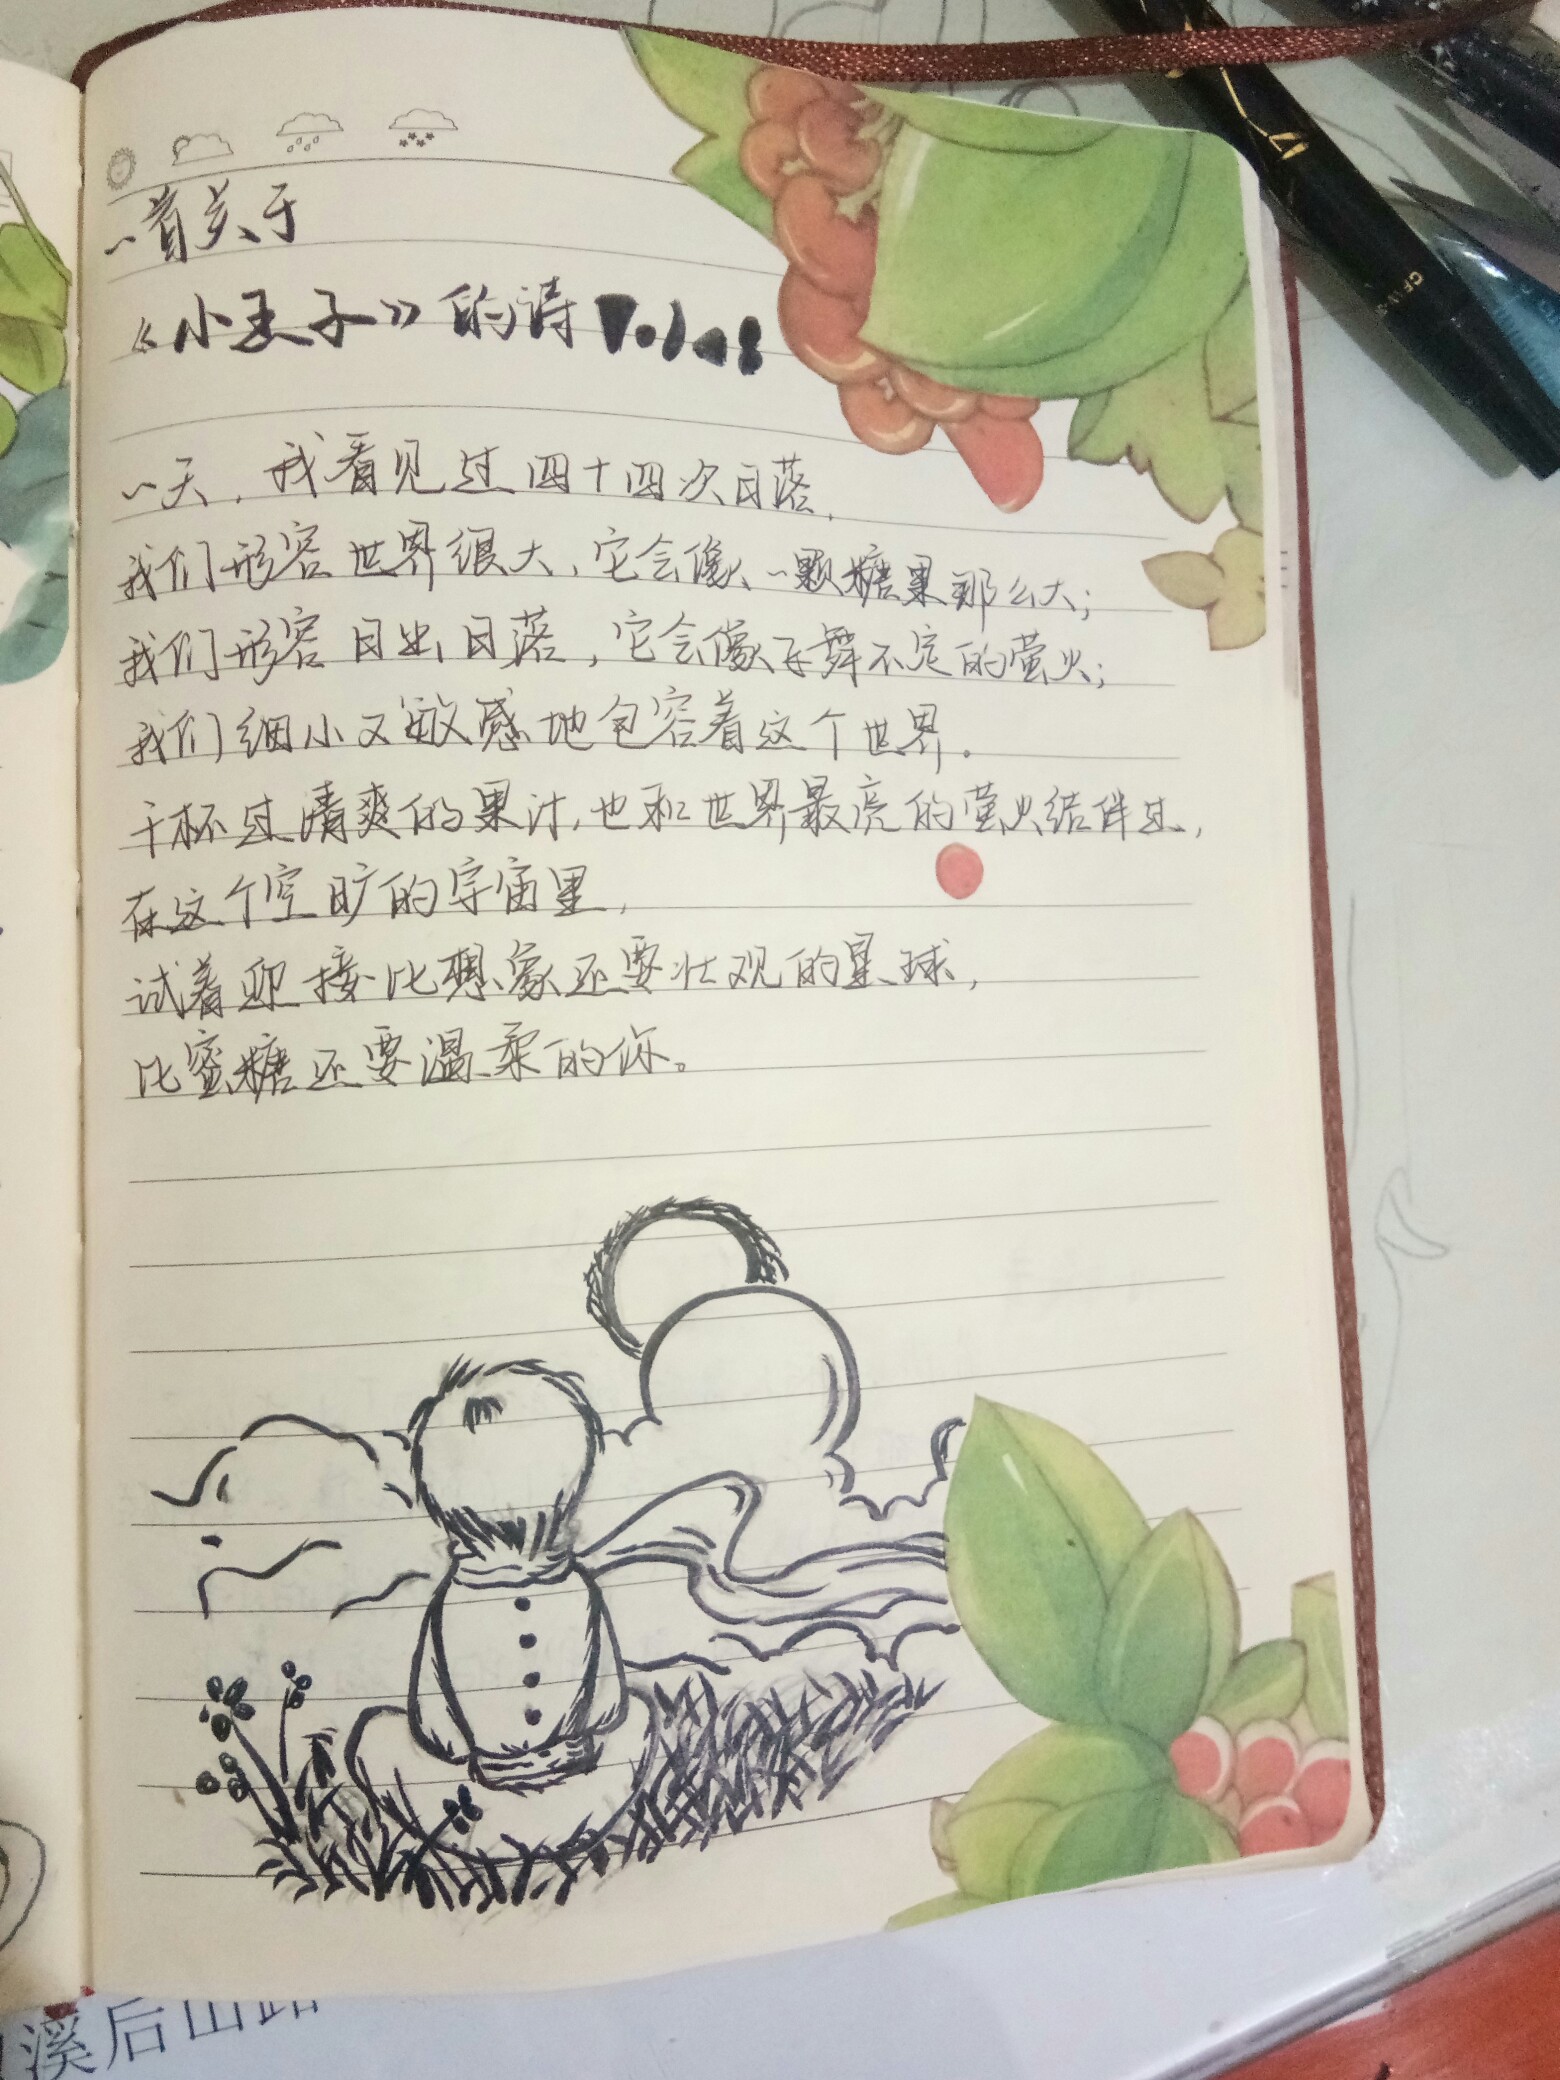 一首关于
《小王子》的诗
一天，我看见过四十四次日落，
我们形容世界很大，它会像一颗糖果那么大；
我们形容日出日落，它会像飞舞不定的萤火；
我们细小又敏感地包容着这个世界。
干杯过清爽的果汁，也和世界最亮的萤火结伴过，
在这个空旷的宇宙里，
试着迎接比想象还要壮观的星球，
比蜜糖还要温柔的你。
溪后山路